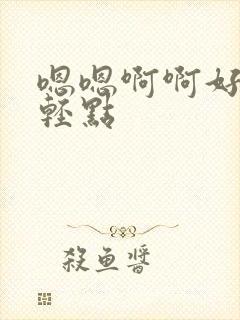 嗯嗯啊啊好
輕點
殺魚醬